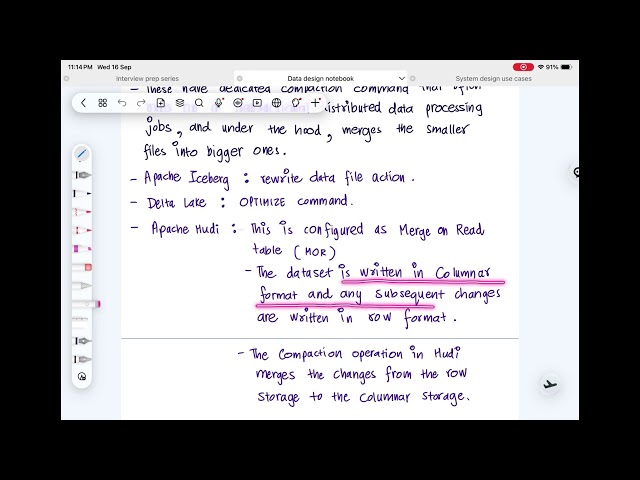 11:14 PM Wed 16 Sep
91%
Interview prep series
Data design notebook
System design use cases
- These have dedicated compaction command that often
distributed data processing
jobs, and under the hood, merges the smaller
files into bigger ones.
- Apache Iceberg : rewrite data file action.
- Delta Lake : OPTIMIZE command.
- Apache Hudi : This is configured as Merge on Read
table (MOR)
- The dataset is written in Columnar
format and any subsequent changes
are written in row format.
- The Compaction operation in Hudi
merges the changes from the row
storage to the columnar storage.